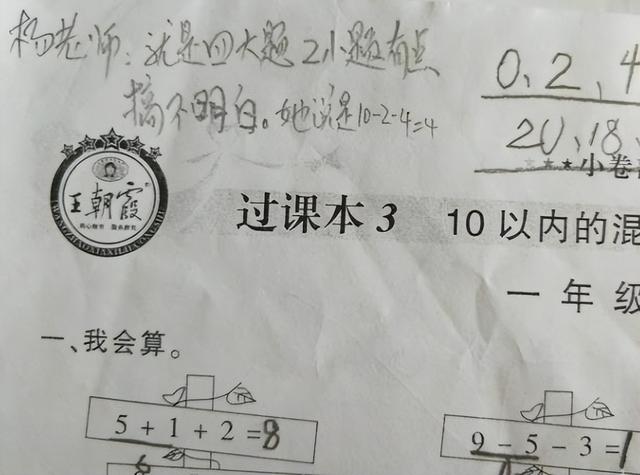 杨老师：就是四大题2小题有点
搞不明白。她说是10-2-4=4
0、2、4
20、18、
王朝霞
小卷
过课本3 10以内的混
一年级
一、我会算。
5+1+2=8
9-5-3=1
6
4